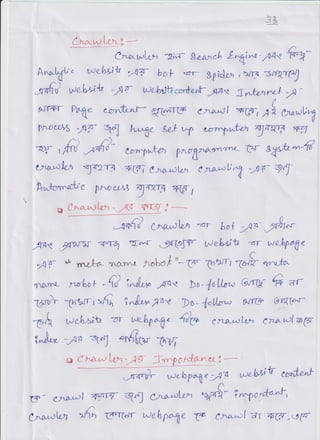 33
Crawler :—
Crawler হল Search Engine এবং কিছু
Analytic website এর bot বা spider, যার সাহায্যে
একটি website এর website content এবং Internet এ
থাকা Page content গুলোকে crawl করে, এই Crawling
process এর জন্য huge set up computer ব্যবহার করা
হয়, এটি একটি computer programme যে system টি
crawler ব্যবহার করে, crawler crawling এর জন্য
Automatic process ব্যবহার করে,
□ Crawler এর কাজ :—
একটি crawler বা bot এর প্রধান
এবং প্রথম কাজ হল প্রত্যেক website বা webpage
এর "meta name robot" কে দেখা, যেই meta
name robot টি index এবং Do-follow আছে কি না
সেটা দেখা, যদি index এবং Do-follow থাকে তাহলে
সেই website বা webpage টিকে crawler crawl করে
index এর জন্য পাঠিয়ে দেয়,
□ Crawler এর Importance :—
একটি webpage এর website content
কে crawl করার জন্য crawler খুবই important,
Crawler যদি কোনো webpage কে crawl না করে, তবে